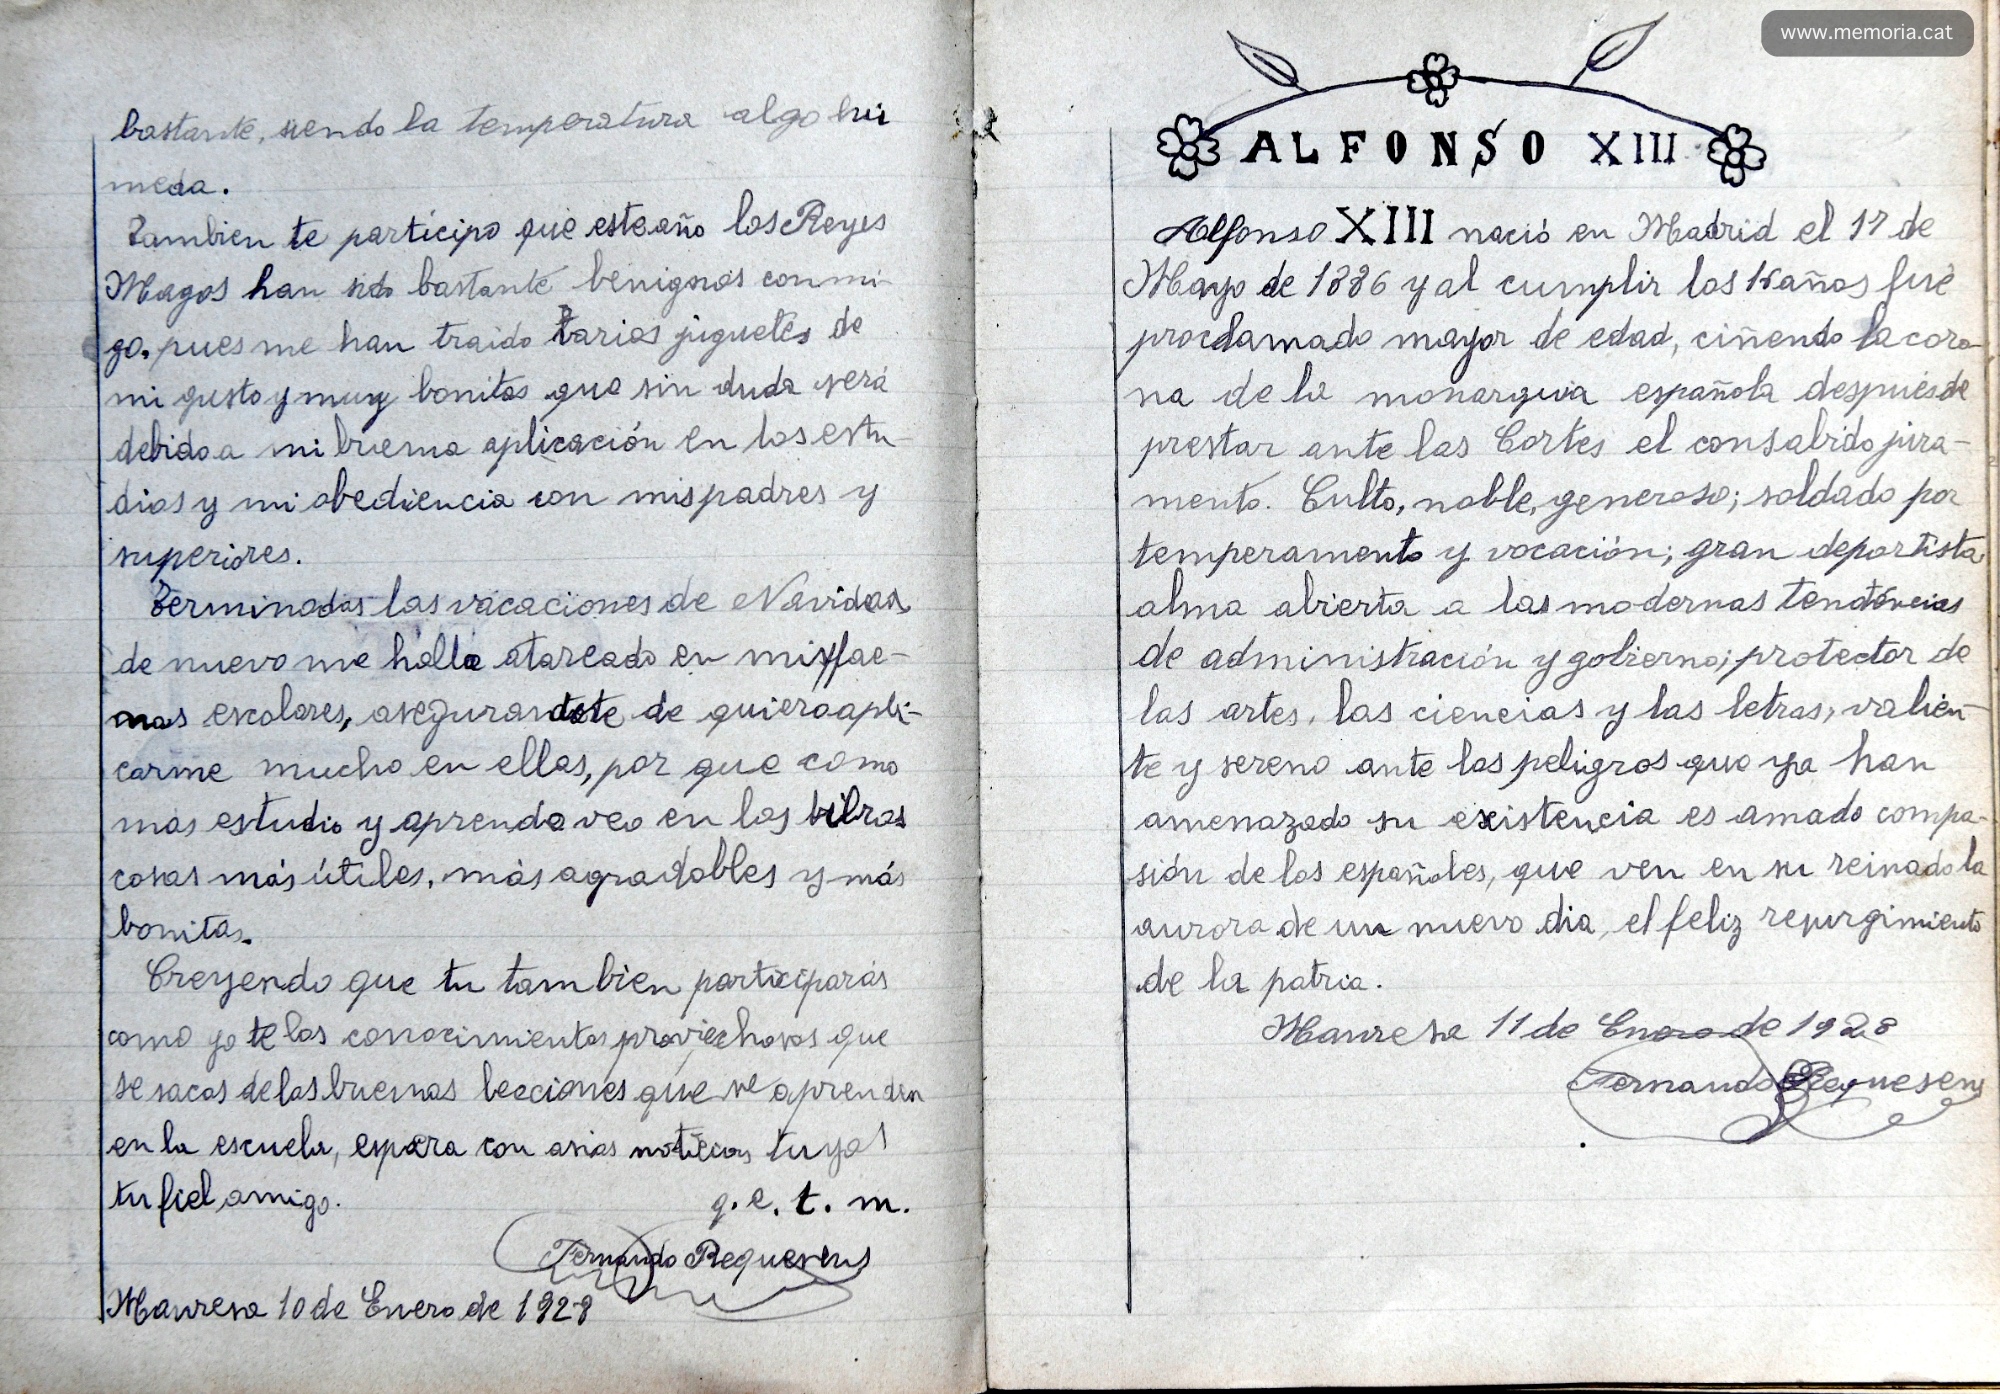 bastante, siendo la temperatura algo hú
meda.
Tambien te partícipo que este año los Reyes
Magos han sido bastante benignos conmi-
go, pues me han traido varios juguetes de
mi gusto y muy bonitos que sin duda será
debido a mi buena aplicación en los estu-
dios y mi obediencia con mis padres y
superiores.
Terminadas las vacaciones de Navidad,
de nuevo me hallo atareado en mis fae-
nas escolares, asegurandote de quiero apli-
carme mucho en ellas, por que como
mas estudio y aprendo veo en los libros
cosas más útiles, más agradables y más
bonitas.
Creyendo que tu tambien participarás
como yo te los conocimientos proviechosos que
se sacas de las buenas lecciones que se aprenden
en la escuela, espera con asias noticias tuyas
tu fiel amigo.
q. e. t. m.
Fernando Requesens
Manresa 10 de Enero de 1928
www.memoria.cat
ALFONSO XIII
Alfonso XIII nació en Madrid el 17 de
Mayo de 1886 y al cumplir los 16 años fué
proclamado mayor de edad, ciñendo la coro-
na de la monarquia española después de
prestar ante las Cortes el consabido jura-
mento. Culto, noble, generoso; soldado por
temperamento y vocación; gran deportista
alma abierta a las modernas tendéncias
de administración y gobierno; protector de
las artes, las ciencias y las letras, valien-
te y sereno ante los peligros que ya han
amenazado su existencia es amado compa-
sión de los españoles, que ven en su reinado la
aurora de un nuevo dia, el feliz resurgimiento
de la patria.
Manresa 11 de Enero de 1928
Fernando Requesens